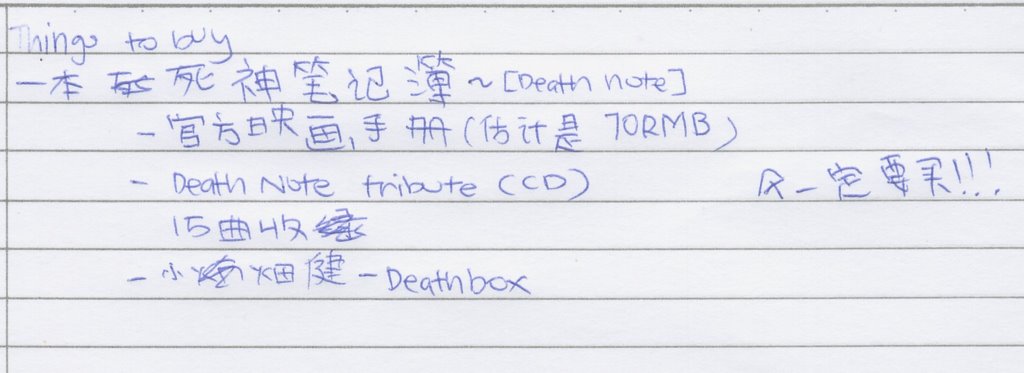 Things to buy
一本 死神笔记簿 ~ [Death note]
- 官方映画手册 (估计是 70RMB)
- Death Note tribute (CD)
一定要买!!!
15曲收
- 小畑健 - Deathbox